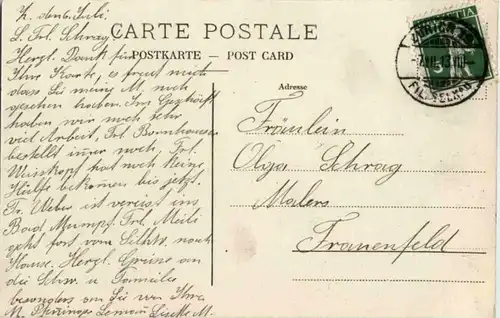 CARTE POSTALE
POSTKARTE – POST CARD
Adresse
HELVETIA
5
ZÜRICH
-7.VII.13.VIII-
FIL.
Z. den 6. Juli.
L. Frl. Schrag,
Herzl. Dank für
Ihre Karte, es freut mich
dass Sie meine M, nich
gesehen haben. Im Geschäft
haben wir noch sehr
viel Arbeit. Frl. Bornhauser
bestellt immer noch, Frl.
Winkopf hat noch keine
Hülfe bekomen bis jetzt.
Fr. Weber ist verreist ins
Bad Mumpf. Frl. Meili
geht fort vom Silhw. nach
Hause. Herzl. Grüsse an
die Schw. u Familie
besonders an Sie von Ihre
M.
Fräulein
Olga Schrag
Malers
Frauenfeld